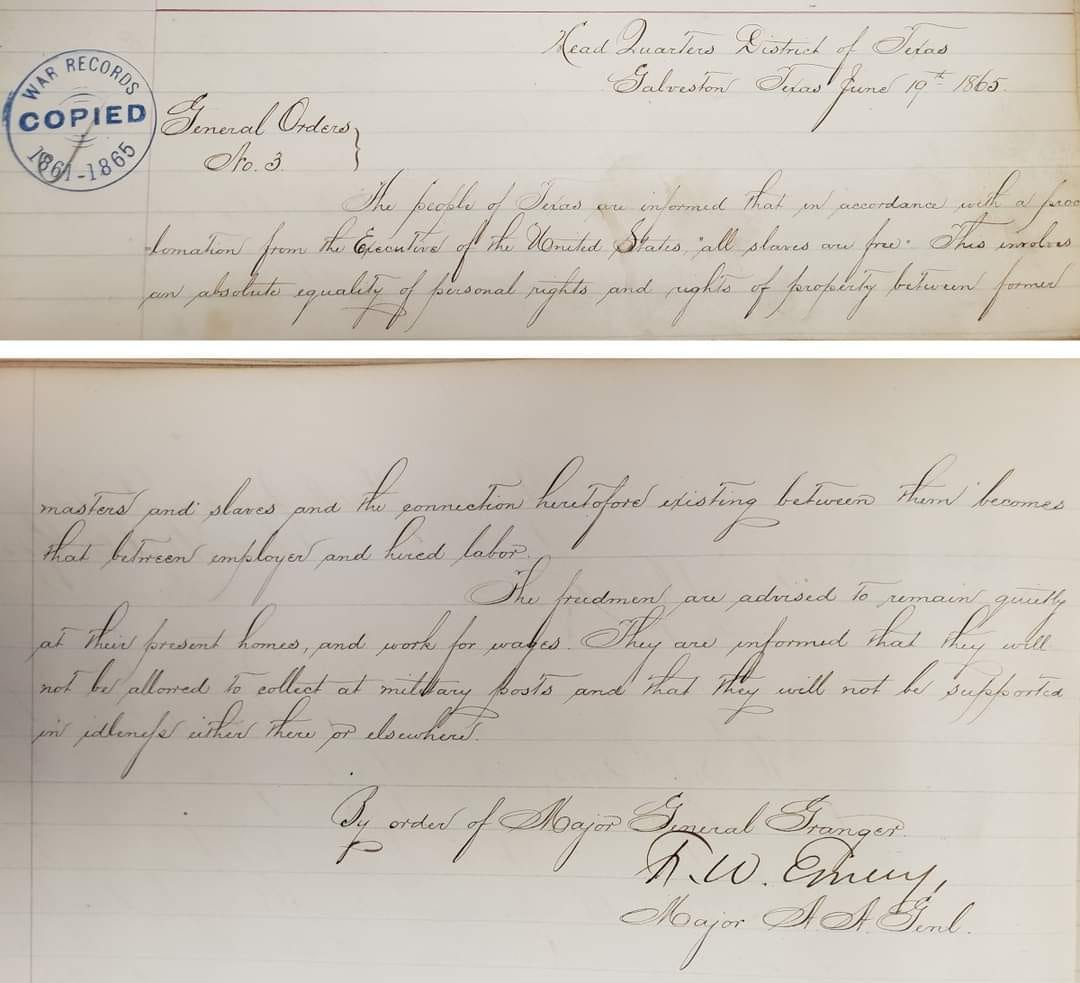 Head Quarters District of Texas
Galveston Texas June 19th 1865.
WAR RECORDS
COPIED
1861-1865
General Orders
No. 3.
The people of Texas are informed that in accordance with a proc
-lamation from the Executive of the United States, "all slaves are free." This involves
an absolute equality of personal rights and rights of property between former
masters and slaves and the connection heretofore existing between them becomes
that between employer and hired labor.
The freedmen are advised to remain quietly
at their present homes, and work for wages. They are informed that they will
not be allowed to collect at military posts and that they will not be supported
in idleness either there or elsewhere.
By order of Major General Granger
F. W. Emery,
Major A. A. Genl.